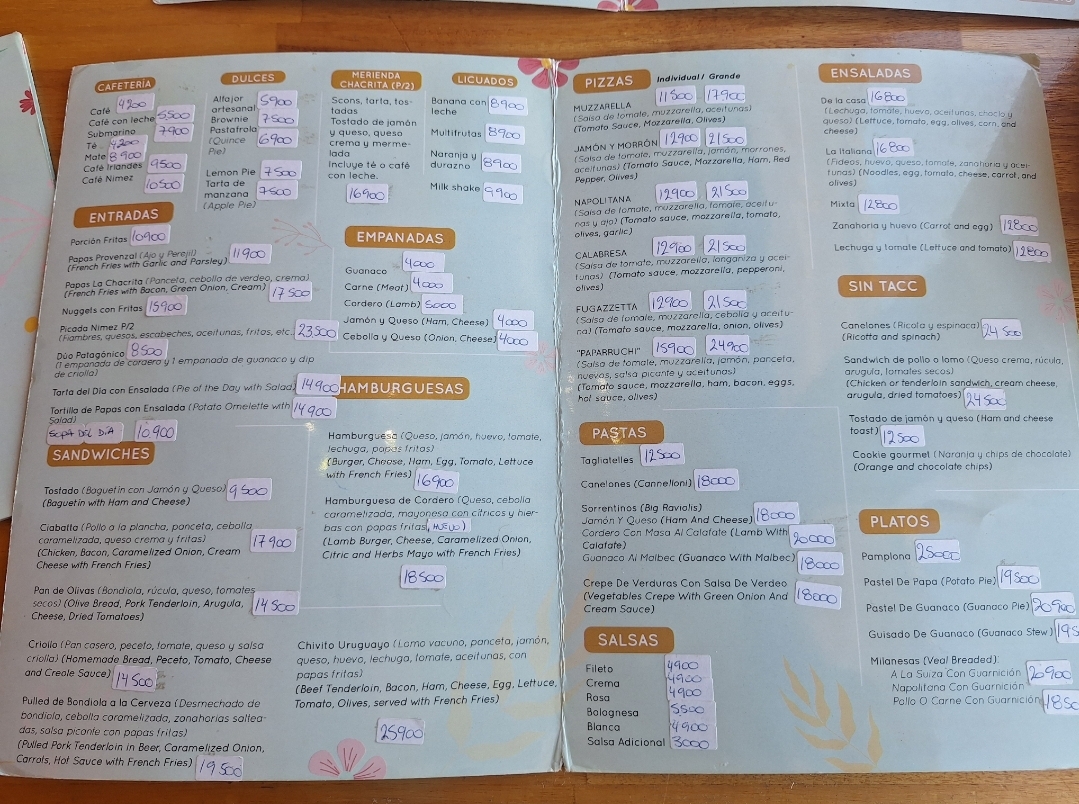 CAFETERÍA
Café 4200
Café con leche 5500
Submarino 7900
Té 4200
Mate 8900
Café Irlandes 9500
Café Nimez 10500
DULCES
Alfajor artesanal 5900
Brownie 7500
Pastafrola 6900
(Quince Pie)
Lemon Pie 7500
Tarta de manzana 7500
(Apple Pie)
MERIENDA
CHACRITA (P/2)
Scons, tarta, tos-
tadas
Tostado de jamón
y queso, queso
crema y merme-
lada
Incluye té o café
con leche.
16900
LICUADOS
Banana con leche 8900
Multifrutas 8900
Naranja y durazno 8900
Milk shake 9900
ENTRADAS
Porción Fritas 10900
Papas Provenzal (Ajo y Perejil) 11900
(French Fries with Garlic and Parsley)
Papas La Chacrita (Panceta, cebolla de verdeo, crema)
(French Fries with Bacon, Green Onion, Cream) 17500
Nuggets con Fritas 15900
Picada Nimez P/2
(Fiambres, quesos, escabeches, aceitunas, fritas, etc. 23,500
Dúo Patagónico 8500
(1 empanada de cordero y 1 empanada de guanaco y dip
de criolla)
Tarta del Día con Ensalada (Pie of the Day with Salad) 14900
Tortilla de Papas con Ensalada (Potato Omelette with 14900
Salad)
SOPA DEL DIA 10.900
EMPANADAS
Guanaco 4000
Carne (Meat) 4000
Cordero (Lamb) 5000
Jamón y Queso (Ham, Cheese) 4000
Cebolla y Queso (Onion, Cheese) 4000
SANDWICHES
Tostado (Baguetin con Jamón y Queso) 9500
(Baguetin with Ham and Cheese)
Ciabatta (Pollo a la plancha, panceta, cebolla
caramelizada, queso crema y fritas) 17900
(Chicken, Bacon, Caramelized Onion, Cream
Cheese with French Fries)
Pan de Olivas (Bondiola, rúcula, queso, tomates
secos) (Olive Bread, Pork Tenderloin, Arugula, 14500
Cheese, Dried Tomatoes)
Criollo (Pan casero, peceto, tomate, queso y salsa
criolla) (Homemade Bread, Peceto, Tomato, Cheese
and Creole Sauce) 14500
Pulled de Bondiola a la Cerveza (Desmechado de
bondiola, cebolla caramelizada, zanahorias saltea-
das, salsa picante con papas fritas)
(Pulled Pork Tenderloin in Beer, Caramelized Onion,
Carrots, Hot Sauce with French Fries) 19500
HAMBURGUESAS
Hamburguesa (Queso, jamón, huevo, tomate,
lechuga, papas fritas)
(Burger, Cheese, Ham, Egg, Tomato, Lettuce
with French Fries) 16900
Hamburguesa de Cordero (Queso, cebolla
caramelizada, mayonesa con cítricos y hier-
bas con papas fritas, HUEVO)
(Lamb Burger, Cheese, Caramelized Onion,
Citric and Herbs Mayo with French Fries)
18500
Chivito Uruguayo (Lomo vacuno, panceta, jamón,
queso, huevo, lechuga, tomate, aceitunas, con
papas fritas)
(Beef Tenderloin, Bacon, Ham, Cheese, Egg, Lettuce,
Tomato, Olives, served with French Fries)
25900
PIZZAS Individual / Grande
MUZZARELLA 11500 17900
(Salsa de tomate, muzzarella, aceitunas)
(Tomato Sauce, Mozzarella, Olives)
JAMÓN Y MORRÓN 12900 21500
(Salsa de tomate, muzzarella, jamón, morrones,
aceitunas) (Tomato Sauce, Mozzarella, Ham, Red
Pepper, Olives)
NAPOLITANA 12900 21500
(Salsa de tomate, muzzarella, tomate, aceitu-
nas y ajo) (Tomato sauce, mozzarella, tomato,
olives, garlic)
CALABRESA 12900 21500
(Salsa de tomate, muzzarella, longaniza y acei-
tunas) (Tomato sauce, mozzarella, pepperoni,
olives)
FUGAZZETTA 12900 21500
(Salsa de tomate, muzzarella, cebolla y aceitu-
na) (Tomato sauce, mozzarella, onion, olives)
"PAPARRUCHI" 15900 24900
(Salsa de tomate, muzzarella, jamón, panceta,
huevos, salsa picante y aceitunas)
(Tomato sauce, mozzarella, ham, bacon, eggs,
hot sauce, olives)
PASTAS
Tagliatelles 12500
Canelones (Cannelloni) 18000
Sorrentinos (Big Raviolis)
Jamón Y Queso (Ham And Cheese) 18000
Cordero Con Masa Al Calafate (Lamb With 20000
Calafate)
Guanaco Al Malbec (Guanaco With Malbec) 18000
Crepe De Verduras Con Salsa De Verdeo
(Vegetables Crepe With Green Onion And 18000
Cream Sauce)
SALSAS
Fileto 4900
Crema 4900
Rosa 4900
Bolognesa 5500
Blanca 4900
Salsa Adicional 3000
ENSALADAS
De la casa 16800
(Lechuga, tomate, huevo, aceitunas, choclo y
queso) (Lettuce, tomato, egg, olives, corn, and
cheese)
La Italiana 16800
(Fideos, huevo, queso, tomate, zanahoria y acei-
tunas) (Noodles, egg, tomato, cheese, carrot, and
olives)
Mixta 12800
Zanahoria y huevo (Carrot and egg) 12800
Lechuga y tomate (Lettuce and tomato) 12800
SIN TACC
Canelones (Ricota y espinaca) 24500
(Ricotta and spinach)
Sandwich de pollo o lomo (Queso crema, rúcula,
arugula, tomates secos)
(Chicken or tenderloin sandwich, cream cheese,
arugula, dried tomatoes) 24500
Tostado de jamón y queso (Ham and cheese
toast) 12500
Cookie gourmet (Naranja y chips de chocolate)
(Orange and chocolate chips)
PLATOS
Pamplona 25000
Pastel De Papa (Potato Pie) 19500
Pastel De Guanaco (Guanaco Pie) 20900
Guisado De Guanaco (Guanaco Stew) 195
Milanesas (Veal Breaded):
A La Suiza Con Guarnición 20900
Napolitana Con Guarnición
Pollo O Carne Con Guarnición 1850